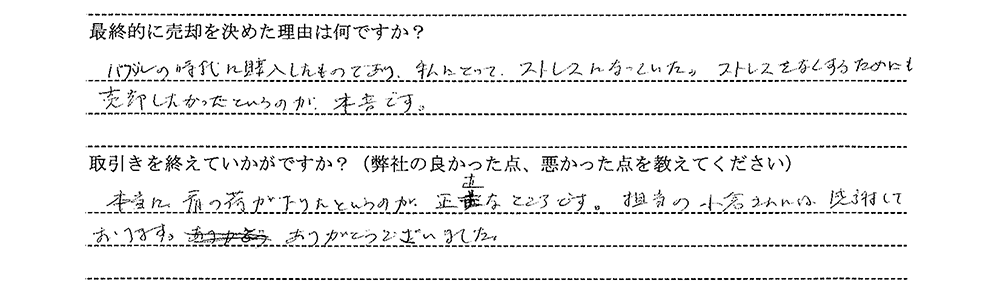 最終的に売却を決めた理由は何ですか？
バブルの時代に購入したものであり、私にとって、ストレスになっていた。ストレスをなくするためにも
売却したかったというのが、本音です。
取引きを終えていかがですか？（弊社の良かった点、悪かった点を教えてください）
本当に、肩の荷が下りたというのが、正直なところです。担当の小倉さんには、感謝して
おります。ありがとう ありがとうございました。